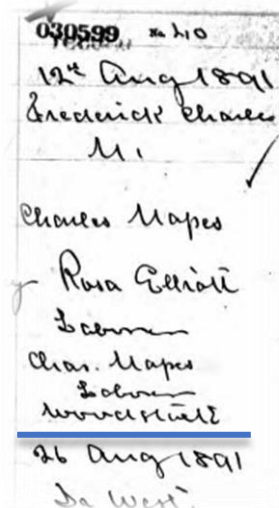 030599 No 40
12th Aug 1891
Frederick Charles
M.
Charles Mapes
Rosa Elliott
Laborer
Chas. Mapes
Laborer
Woodstock
26 Aug 1891
Da West.